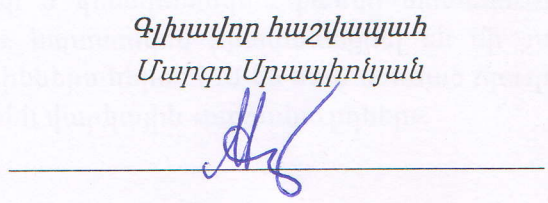 Գլխավոր հաշվապահ
Մարգո Սրապիոնյան